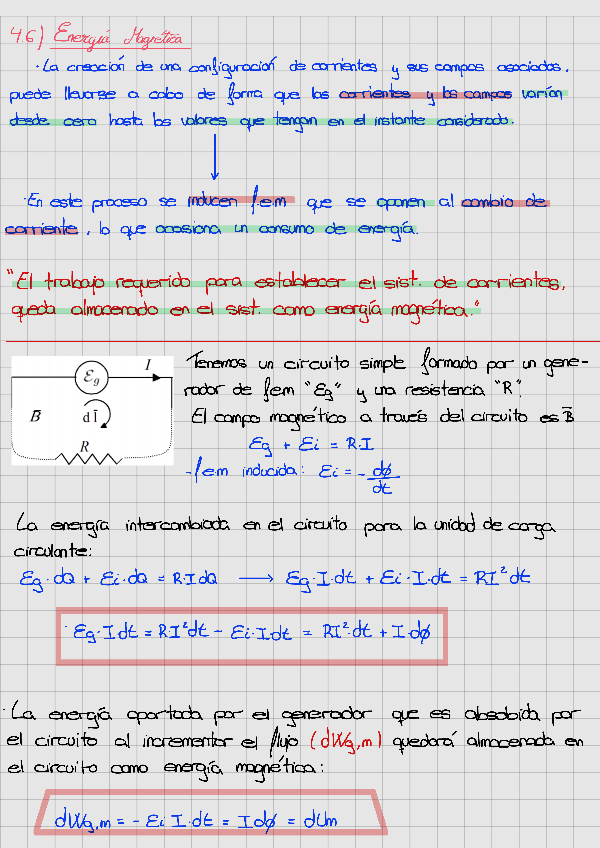 4.6) Energía Magnética
· La creación de una configuración de corrientes y sus campos asociados,
puede llevarse a cabo de forma que las corrientes y los campos varían
desde cero hasta los valores que tengan en el instante considerado.
· En este proceso se inducen fem que se oponen al cambio de
corriente, lo que ocasiona un consumo de energía.
"El trabajo requerido para establecer el sist. de corrientes,
queda almacenado en el sist. como energía magnética."
Eg I
B̄ d Ī
R
Tenemos un circuito simple formado por un gene-
rador de fem "Eg" y una resistencia "R".
El campo magnético a través del circuito es B̄
Eg + Ei = R·I
- fem inducida: Ei = - dφ/dt
La energía intercambiada en el circuito para la unidad de carga
circulante:
Eg·dQ + Ei·dQ = R·I dQ ⟶ Eg·I·dt + Ei·I·dt = RI² dt
· Eg·I dt = R·I² dt - Ei·I·dt = RI²·dt + I·dφ
· La energía aportada por el generador que es absobida por
el circuito al incrementar el flujo (dWg,m) quedará almacenada en
el circuito como energía magnética:
dWg,m = - Ei I·dt = I dφ = dUm